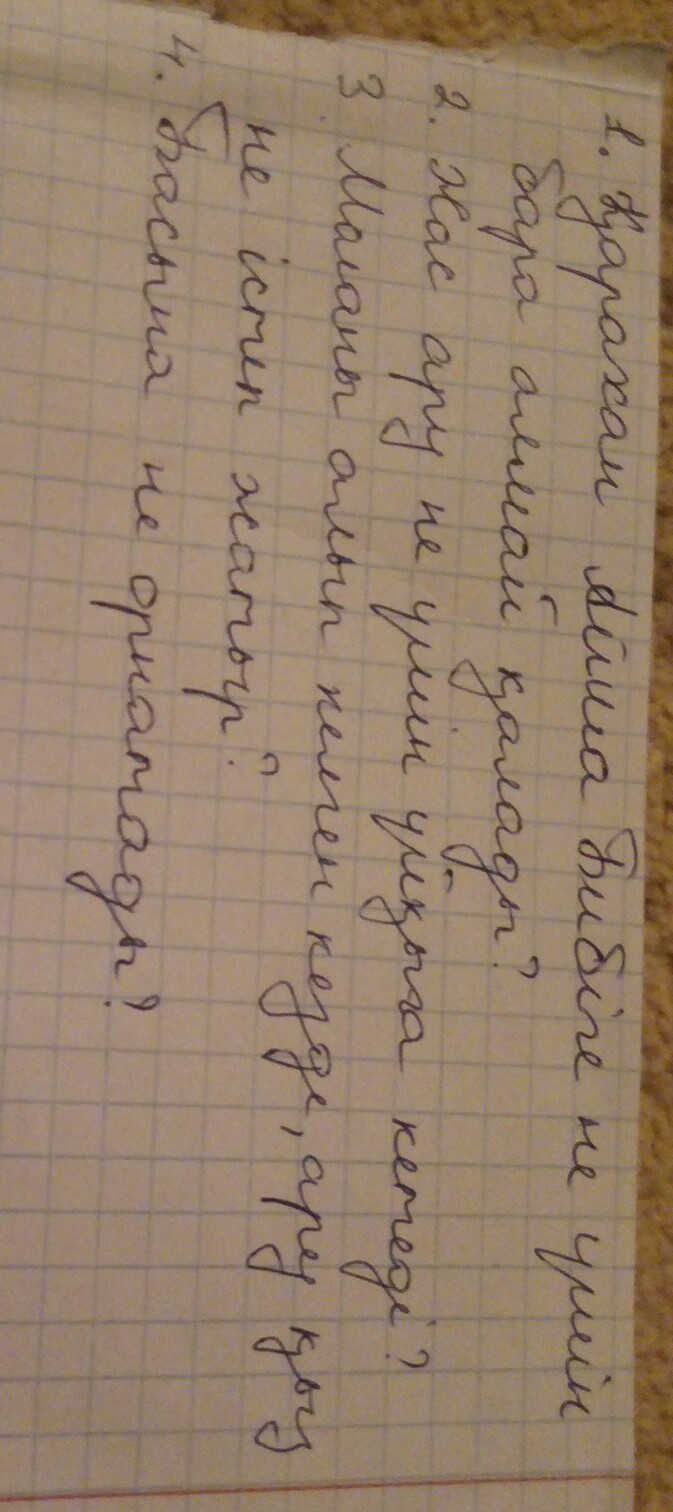 1. Қарахан Айша Бибіге не үшін
бара алмай қалады?
2. Жас ару не үшін ұйқыға кетеді?
3. Моланы алып келген кезде, ару қыз
не істеп жатыр?
4. Басына не орнатады?